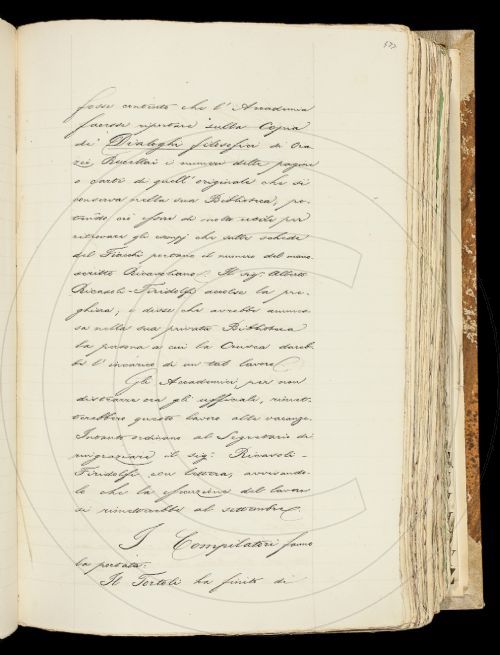 fosse contento che l'Accademia
facesse riportare sulla Copia
de' Dialoghi filosofici di Ora-
zio Rucellai i numeri delle pagine
o carte di quell'originale che si
conserva nella sua Biblioteca, po-
tendo ciò essere di molta utilità per
ritrovare gli esempj che nelle schede
del Fiacchi portano il numero del mano-
scritto Ricasoliano. Il sig.r Alberto
Ricasoli-Firidolfi accolse la pre-
ghiera, e disse che avrebbe ammes-
sa nella sua privata Biblioteca
la persona a cui la Crusca dareb-
be l'incarico di un tal lavoro.
Gli Accademici, per non
distrarre ora gli uffiziali, rimet-
terebbero questo lavoro alle vacanze.
Intanto ordinano al Segretario di
ringraziare il sig.r Ricasoli-
Firidolfi con lettera, avvisando-
lo che la esecuzione del lavoro
si rimetterebbe al settembre.
I Compilatori fanno
la portata.
Il Tortoli ha finito di